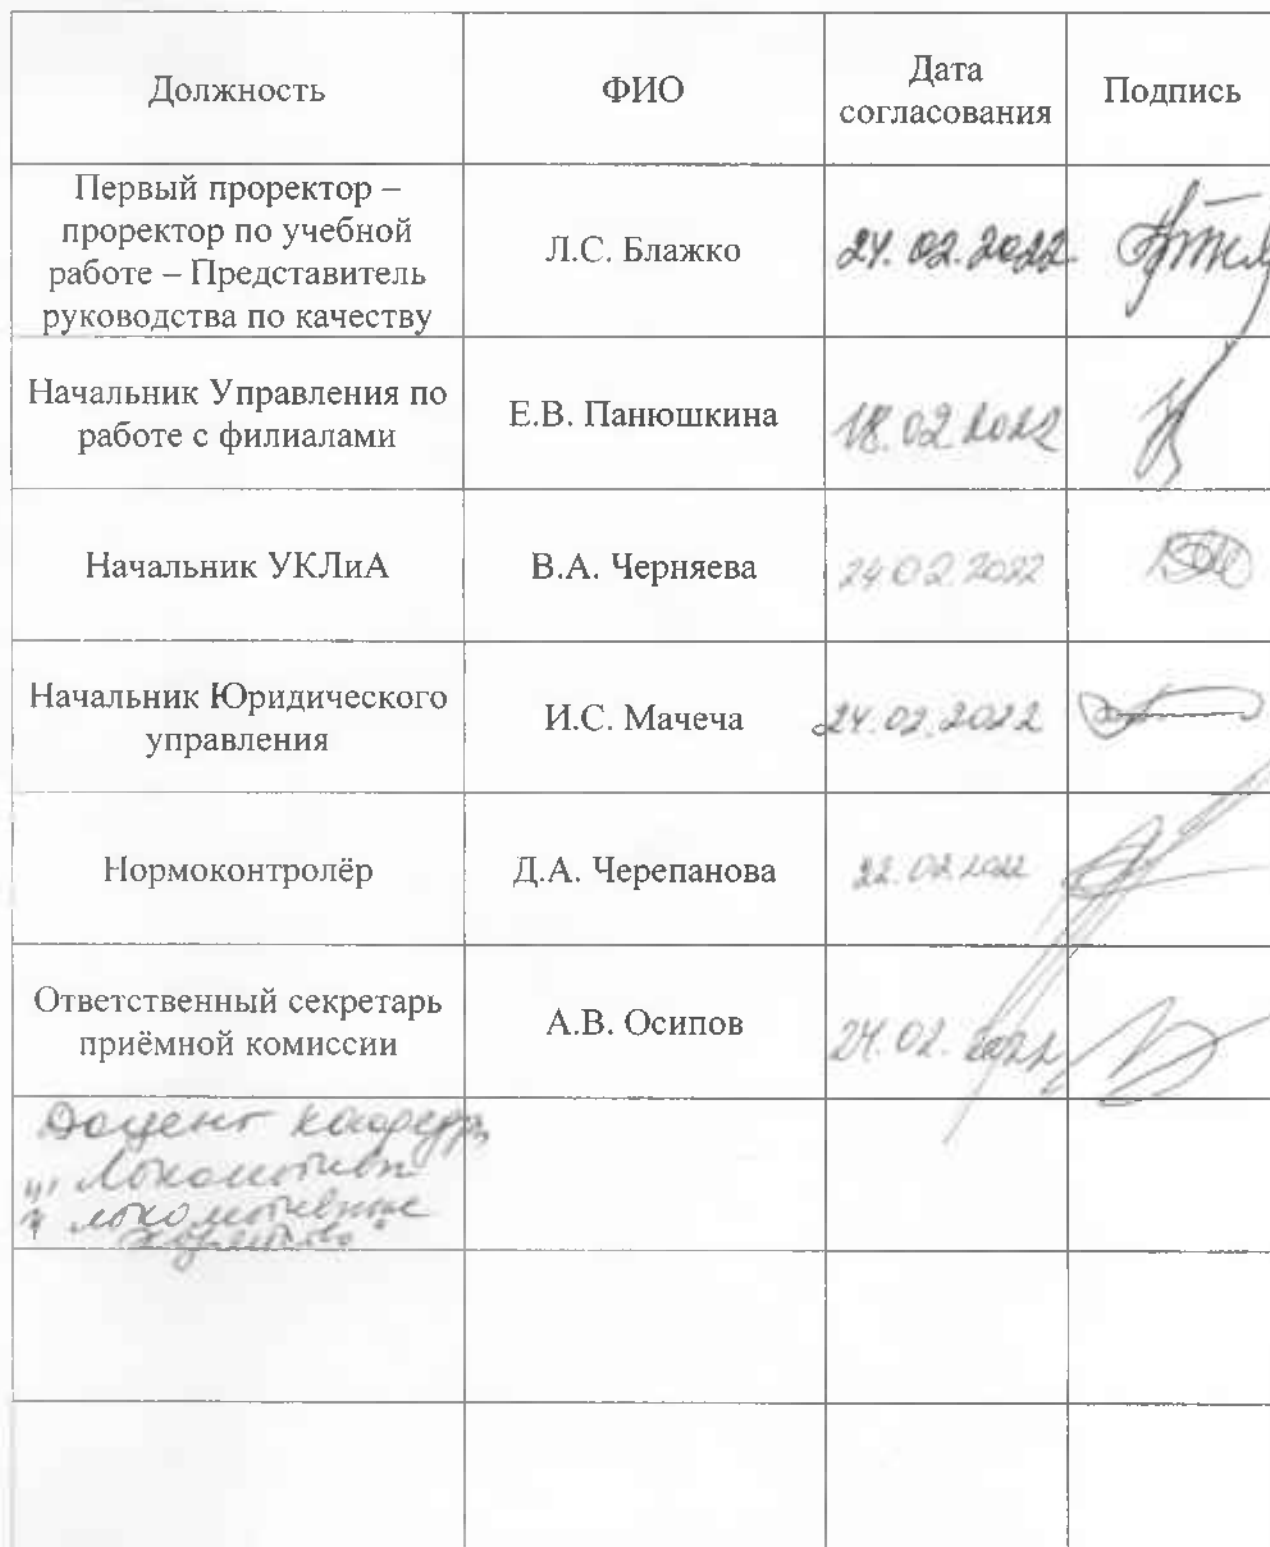 Должность
ФИО
Дата
согласования
Подпись
Первый проректор –
проректор по учебной
работе – Представитель
руководства по качеству
Л.С. Блажко
24.02.2022
Начальник Управления по
работе с филиалами
Е.В. Панюшкина
18.02.2022
Начальник УКЛиА
В.А. Черняева
24.02.2022
Начальник Юридического
управления
И.С. Мачеча
24.02.2022
Нормоконтролёр
Д.А. Черепанова
22.02.2022
Ответственный секретарь
приёмной комиссии
А.В. Осипов
24.02.2022
Доцент кафедры
Локомотивы
и локомотивное
хозяйство"